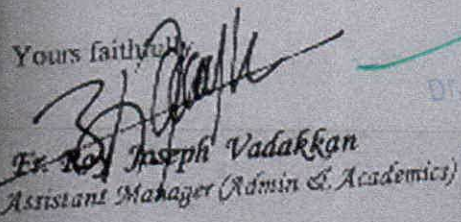 Yours faithfully
Dr.
Fr. Roy Joseph Vadakkan
Assistant Manager (Admin & Academics)